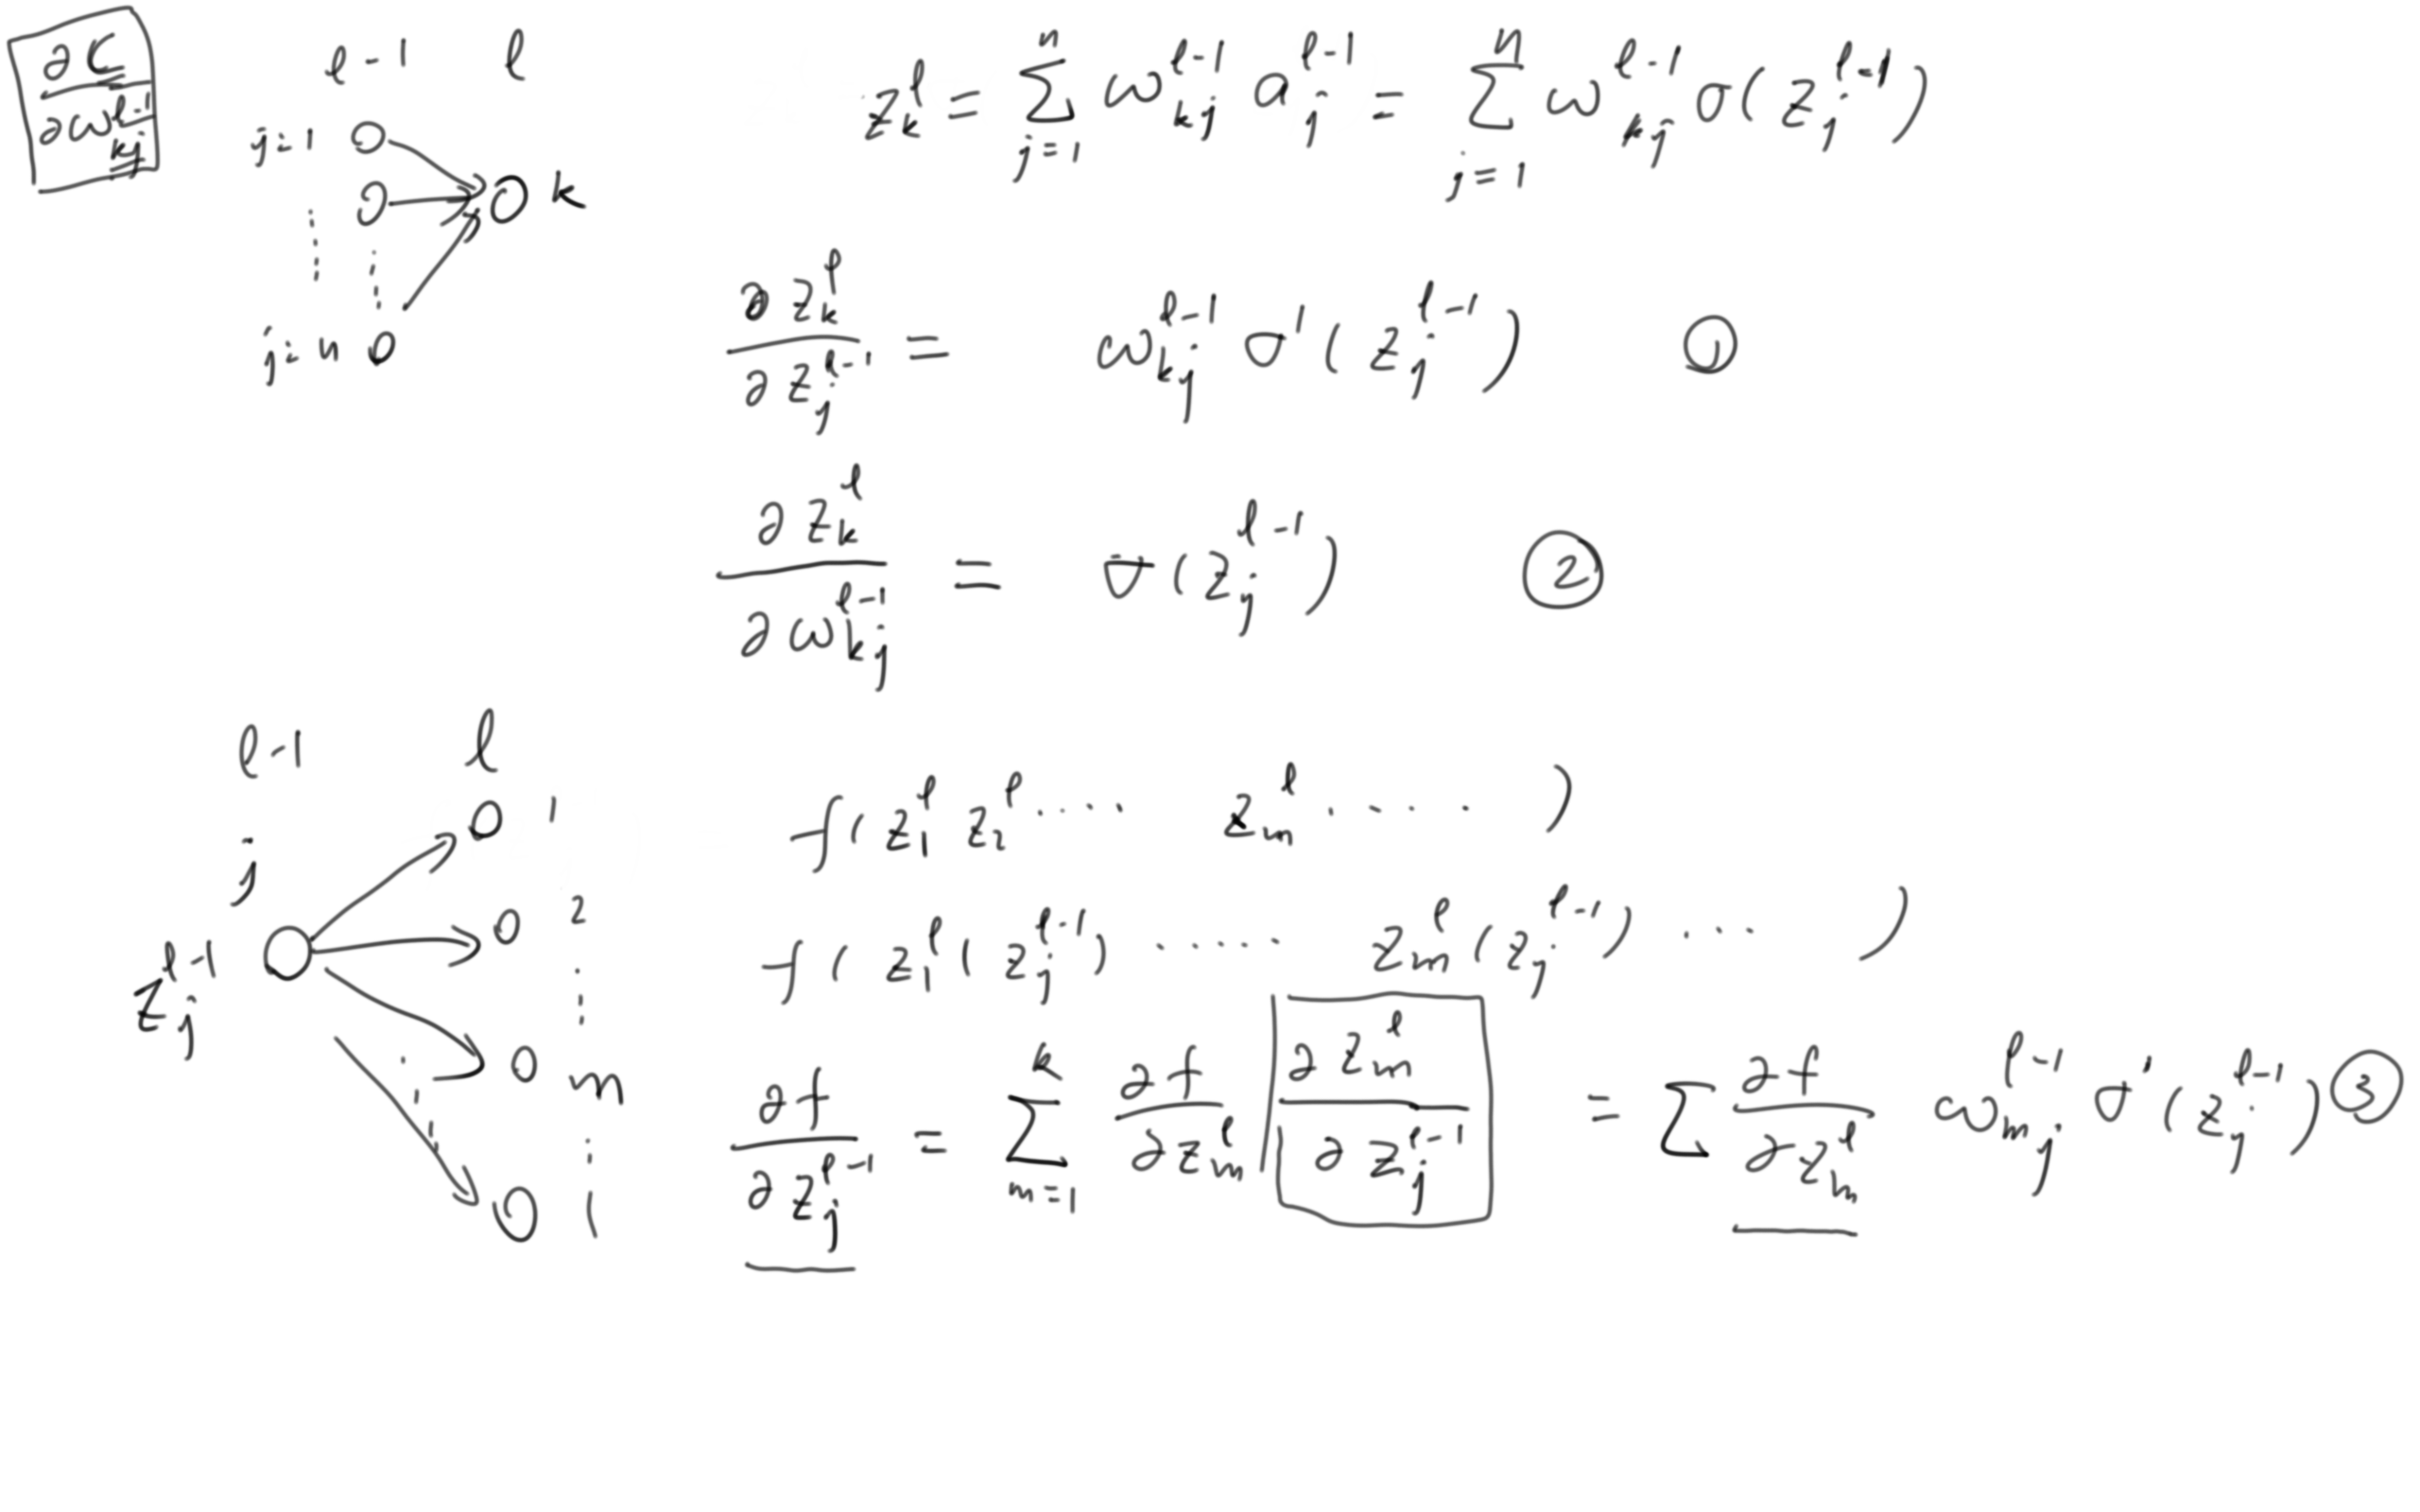 ∂C / ∂ω_{kj}^{l-1}
l-1 l
z_k^l = Σ_{j=1}^{n} ω_{kj}^{l-1} a_j^{l-1} = Σ_{j=1}^{n} ω_{kj}^{l-1} σ(z_j^{l-1})
j=1
k
j=n
∂z_k^l / ∂z_j^{l-1} = ω_{kj}^{l-1} σ'(z_j^{l-1}) ①
∂z_k^l / ∂ω_{kj}^{l-1} = σ(z_j^{l-1}) ②
l-1 l
j
z_j^{l-1}
1
2
m
f(z_1^l z_2^l .... z_m^l ....)
f(z_1^l(z_j^{l-1}) ..... z_m^l(z_j^{l-1}) ...)
∂f / ∂z_j^{l-1} = Σ_{m=1}^{k} ∂f / ∂z_m^l ∂z_m^l / ∂z_j^{l-1} = Σ ∂f / ∂z_m^l ω_{mj}^{l-1} σ'(z_j^{l-1}) ③